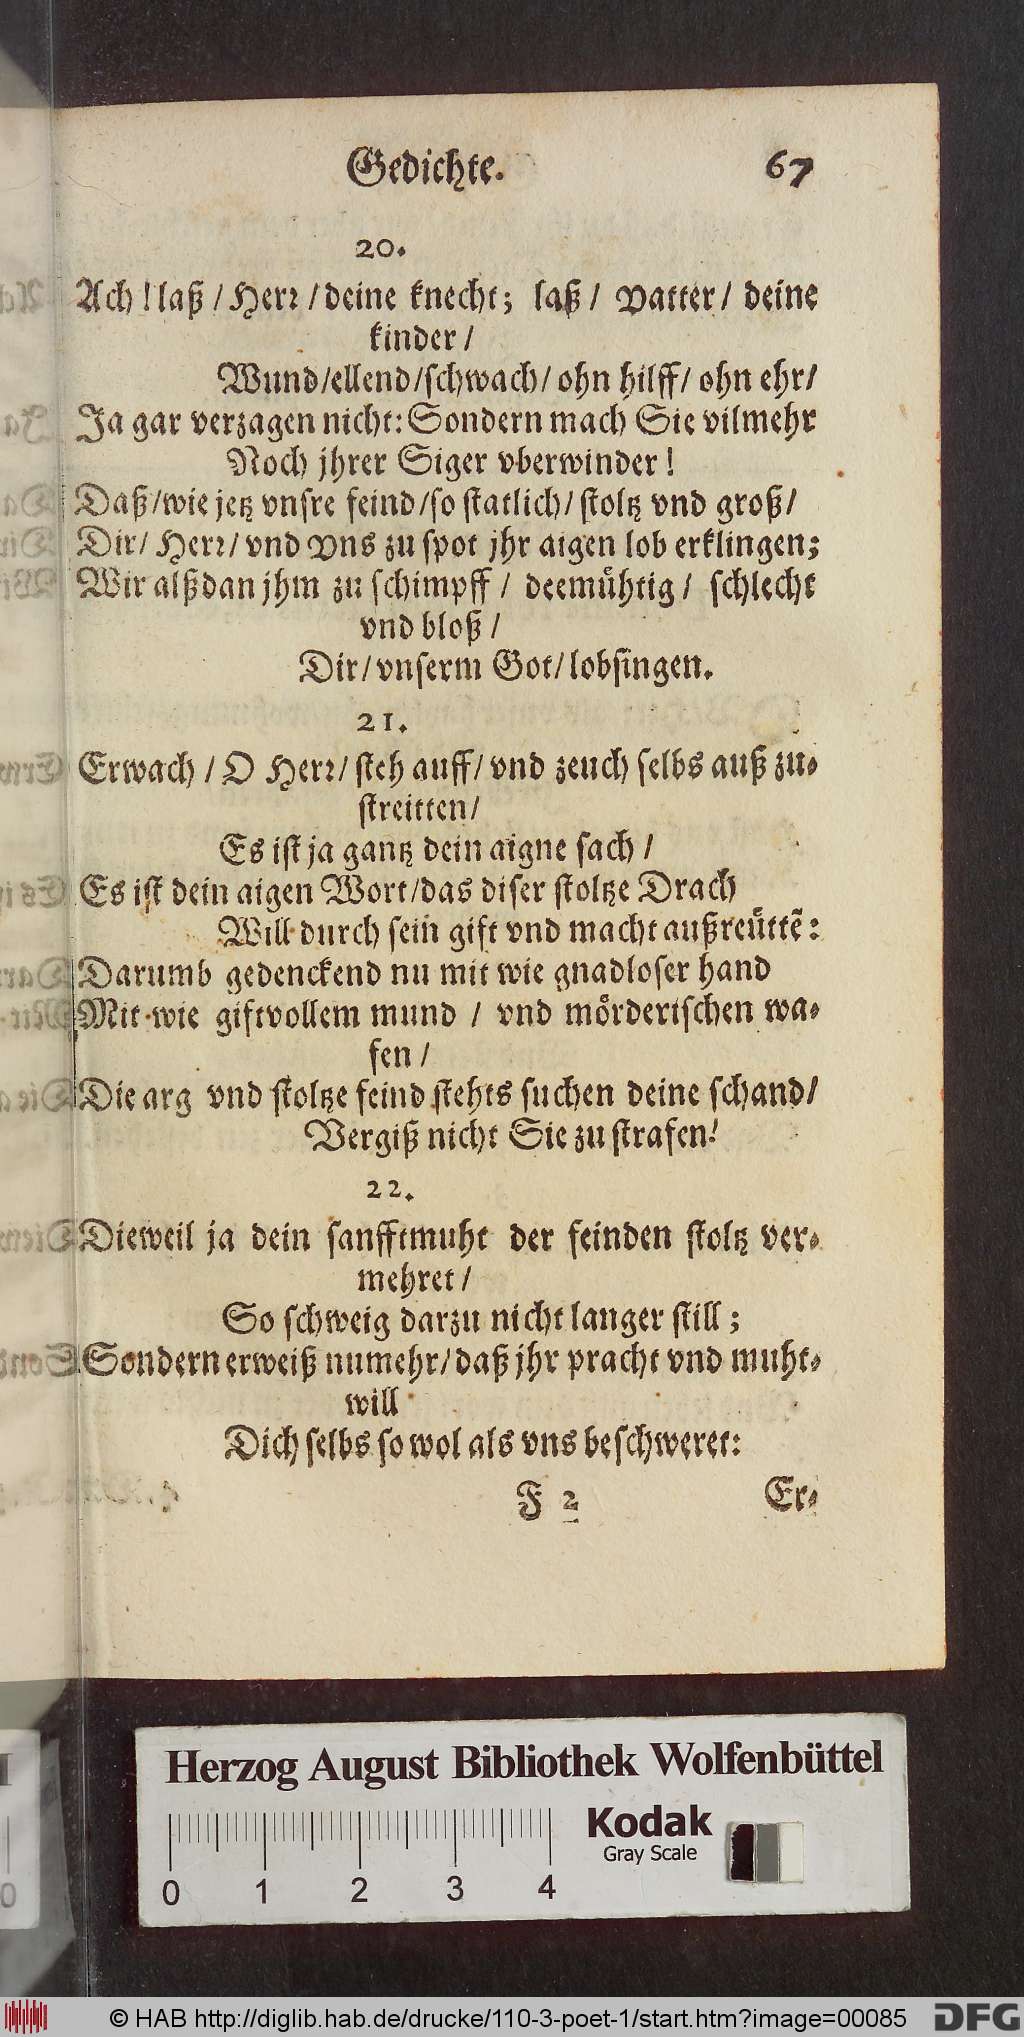 Gedichte. 67
20.
Ach! laß / Herr / deine knecht; laß / Vatter / deine
kinder /
Wund/ellend/schwach/ ohn hilff/ ohn ehr/
Ja gar verzagen nicht: Sondern mach Sie vilmehr
Noch jhrer Siger vberwinder!
Daß/wie jetz vnsre feind/so statlich/ stoltz vnd groß/
Dir/ Herr/ vnd Vns zu spot jhr aigen lob erklingen;
Wir alßdan jhm zu schimpff / deemühtig / schlecht
vnd bloß /
Dir/ vnserm Got/ lobsingen.
21.
Erwach / O Herr/ steh auff/ vnd zeuch selbs auß zu-
streitten/
Es ist ja gantz dein aigne sach /
Es ist dein aigen Wort/das diser stoltze Drach
Will durch sein gift vnd macht außreüttẽ:
Darumb gedenckend nu mit wie gnadloser hand
Mit wie giftvollem mund / vnd mörderischen wa-
fen /
Die arg vnd stoltze feind stehts suchen deine schand/
Vergiß nicht Sie zu strafen!
22.
Dieweil ja dein sanfftmuht der feinden stoltz ver-
mehret /
So schweig darzu nicht langer still;
Sondern erweiß numehr/ daß jhr pracht vnd muht-
will
Dich selbs so wol als vns beschweret:
F 2 Er-
Herzog August Bibliothek Wolfenbüttel
Kodak
Gray Scale
0 1 2 3 4
© HAB http://diglib.hab.de/drucke/110-3-poet-1/start.htm?image=00085 DFG